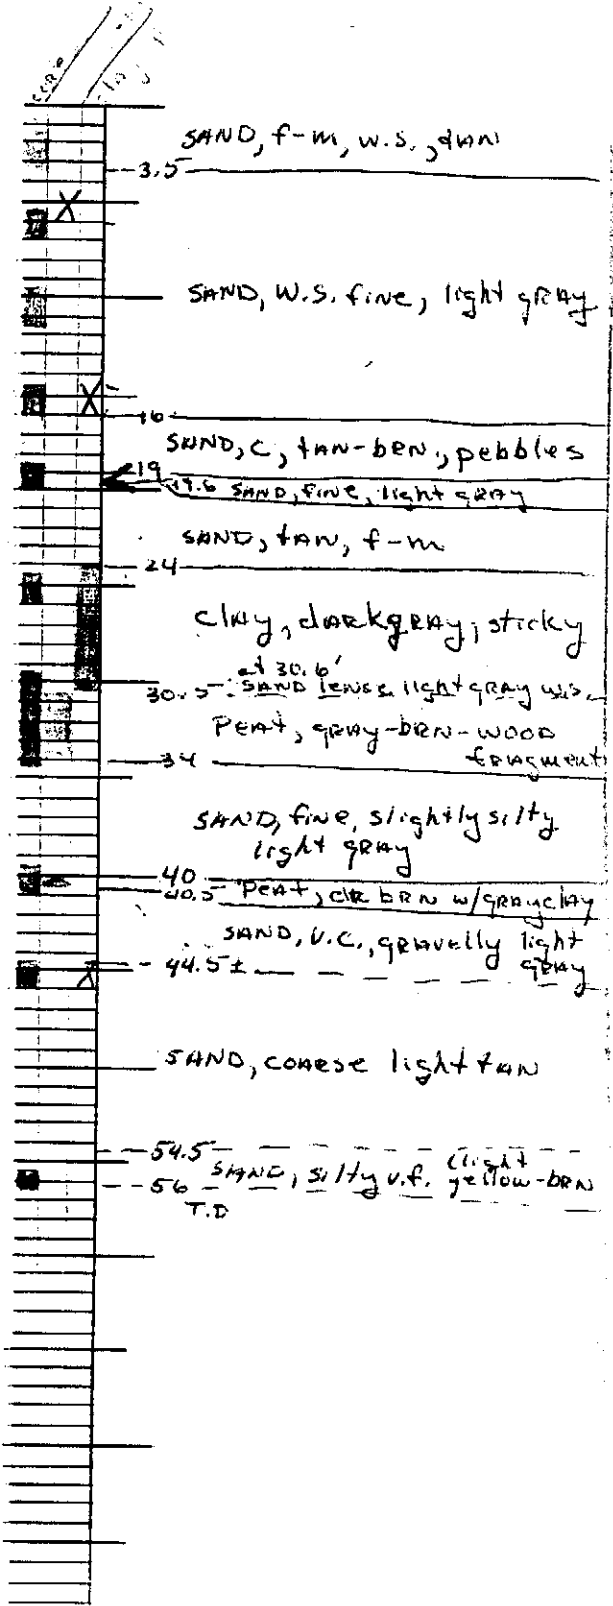 CORE
clay
SAND, f-m, w.s., tan
3.5
X
SAND, W.S. fine, light gray
X
16
SAND, C, tan-brn., pebbles
19
19.6 SAND, fine, light gray
SAND, tan, f-m
24
Clay, dark gray, sticky
at 30.6'
30.5 SAND lense light gray w.s.
Peat, gray-brn-wood
fragment
34
SAND, fine, slightly silty
light gray
40
40.5 Peat, dk brn w/gray clay
SAND, V.C., gravelly light
gray
44.5±
X
SAND, coarse light tan
54.5
SAND, silty v.f. light
yellow-brn
56
T.D